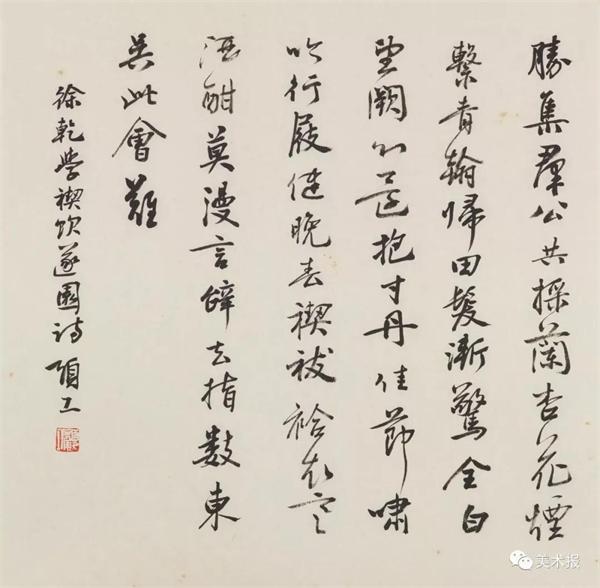 勝集群公共採蘭杏花煙
繫青翰歸田髮漸驚全白
望闕心還抱寸丹佳節嘯
吟行屐健晚春禊祓袷衣寒
酒酣莫漫言辭去指數東
吳此會難
徐乾學禊飲遂園詩 項工
美术报